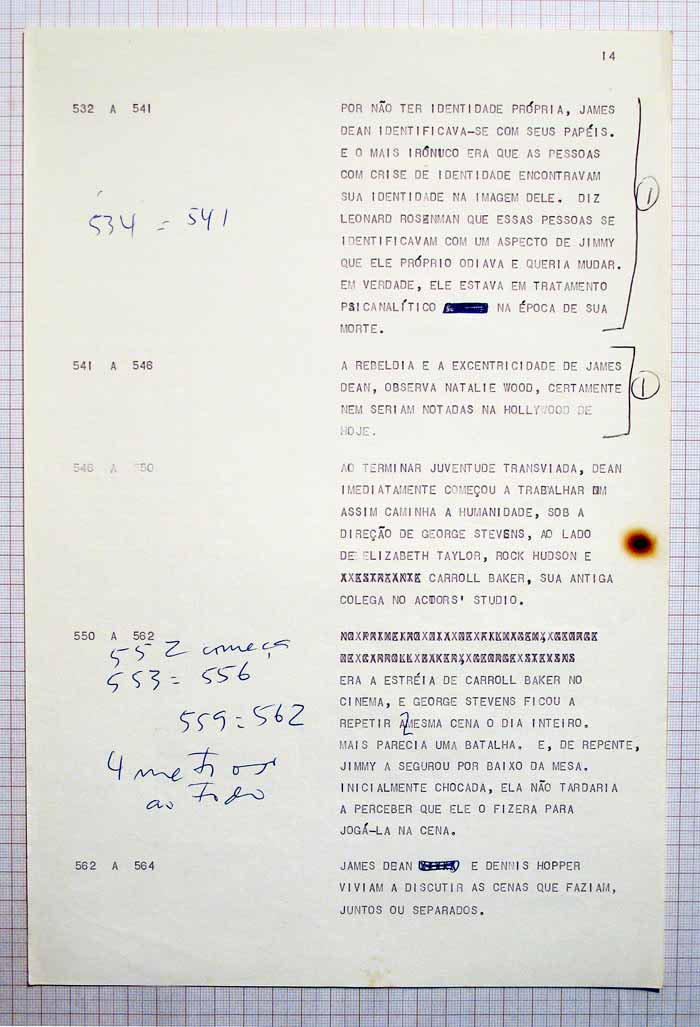 14
532 A 541
POR NÃO TER IDENTIDADE PRÓPRIA, JAMES
DEAN IDENTIFICAVA-SE COM SEUS PAPÉIS.
E O MAIS IRÔNUCO ERA QUE AS PESSOAS
COM CRISE DE IDENTIDADE ENCONTRAVAM
SUA IDENTIDADE NA IMAGEM DELE. DIZ
LEONARD ROSENMAN QUE ESSAS PESSOAS SE
IDENTIFICAVAM COM UM ASPECTO DE JIMMY
QUE ELE PRÓPRIO ODIAVA E QUERIA MUDAR.
EM VERDADE, ELE ESTAVA EM TRATAMENTO
PSICANALÍTICO NA ÉPOCA DE SUA
MORTE.
1
534 = 541
541 A 546
A REBELDIA E A EXCENTRICIDADE DE JAMES
DEAN, OBSERVA NATALIE WOOD, CERTAMENTE
NEM SERIAM NOTADAS NA HOLLYWOOD DE
HOJE.
1
546 A 550
AO TERMINAR JUVENTUDE TRANSVIADA, DEAN
IMEDIATAMENTE COMEÇOU A TRABALHAR EM
ASSIM CAMINHA A HUMANIDADE, SOB A
DIREÇÃO DE GEORGE STEVENS, AO LADO
DE ELIZABETH TAYLOR, ROCK HUDSON E
CARROLL BAKER, SUA ANTIGA
COLEGA NO ACTORS' STUDIO.
550 A 562
552 começa
553 = 556
559 = 562
4 metros
ao todo
ERA A ESTRÉIA DE CARROLL BAKER NO
CINEMA, E GEORGE STEVENS FICOU A
REPETIR A MESMA CENA O DIA INTEIRO.
MAIS PARECIA UMA BATALHA. E, DE REPENTE,
JIMMY A SEGUROU POR BAIXO DA MESA.
INICIALMENTE CHOCADA, ELA NÃO TARDARIA
A PERCEBER QUE ELE O FIZERA PARA
JOGÁ-LA NA CENA.
562 A 564
JAMES DEAN E DENNIS HOPPER
VIVIAM A DISCUTIR AS CENAS QUE FAZIAM,
JUNTOS OU SEPARADOS.